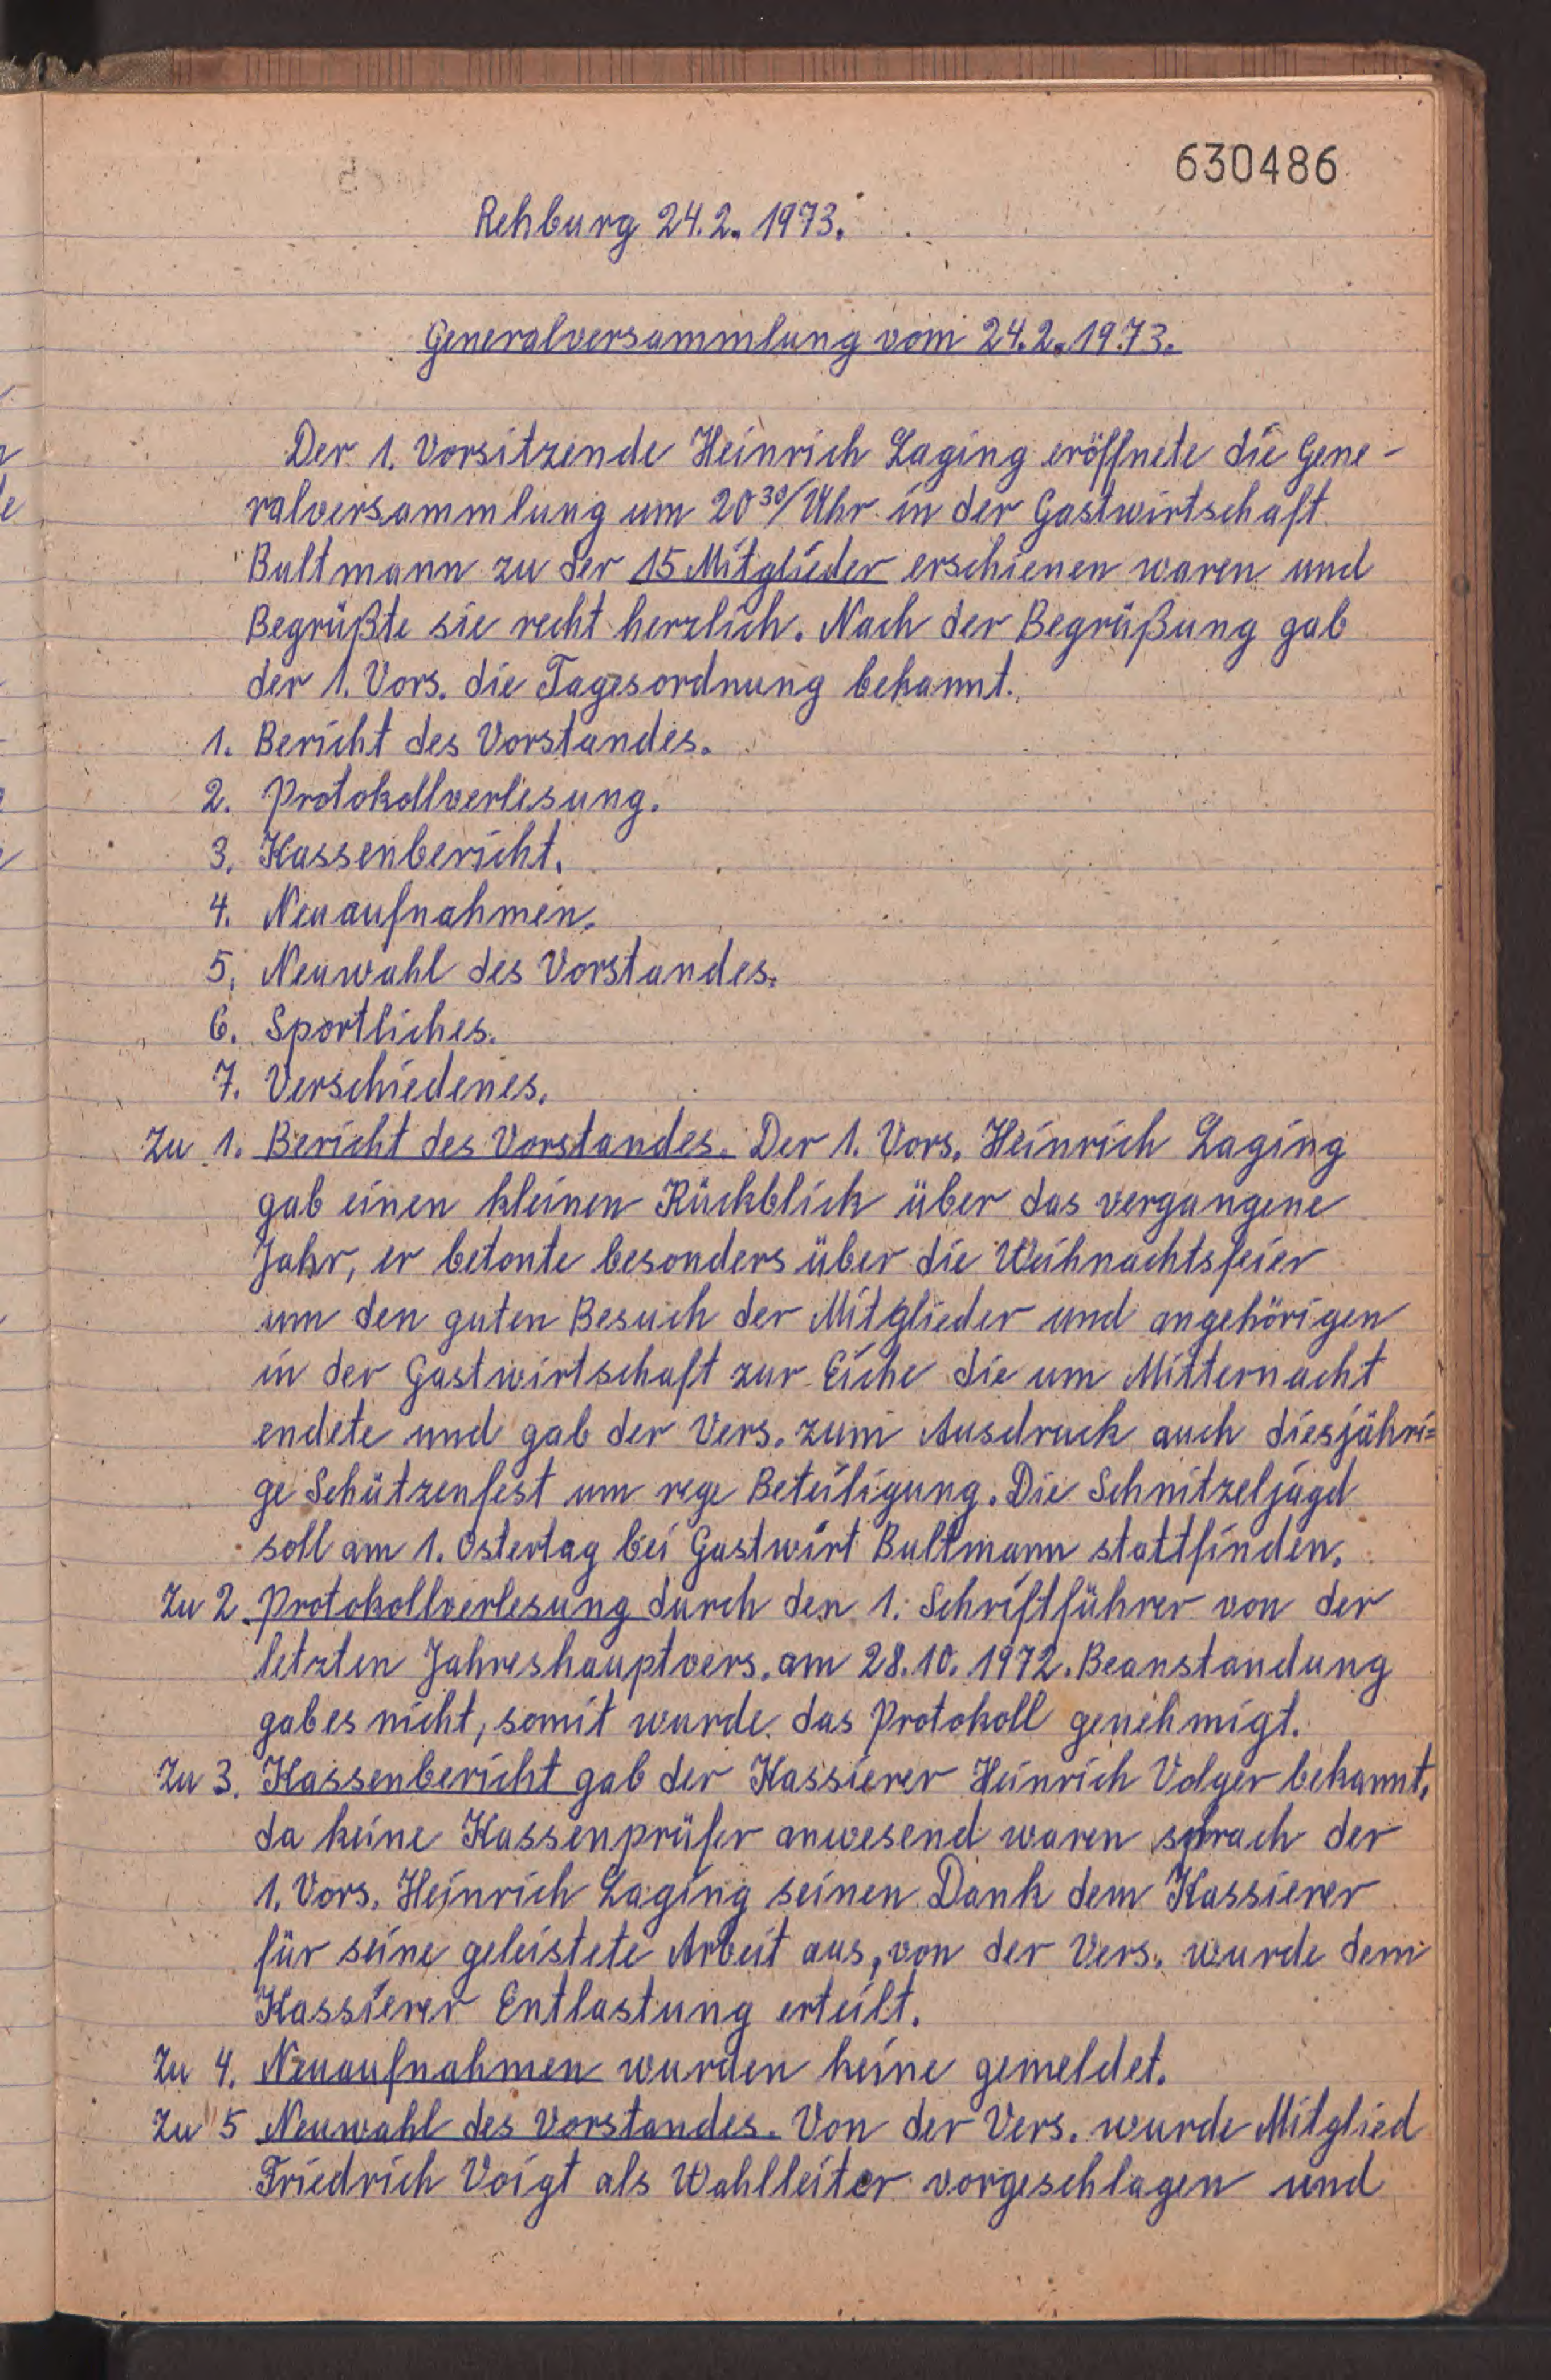 630486
Rehburg 24.2. 1973.
Generalversammlung vom 24.2.1973.
Der 1. Vorsitzende Heinrich Laging eröffnete die Gene-
ralversammlung um 20³⁰/Uhr in der Gastwirtschaft
Bultmann zu der 15 Mitglieder erschienen waren und
Begrüßte sie recht herzlich. Nach der Begrüßung gab
der 1. Vors. die Tagesordnung bekannt.
1. Bericht des Vorstandes.
2. Protokollverlesung.
3. Kassenbericht.
4. Neuaufnahmen.
5. Neuwahl des Vorstandes.
6. Sportliches.
7. Verschiedenes.
Zu 1. Bericht des Vorstandes. Der 1. Vors. Heinrich Laging
gab einen kleinen Rückblick über das vergangene
Jahr, er betonte besonders über die Weihnachtsfeier
um den guten Besuch der Mitglieder und angehörigen
in der Gastwirtschaft zur Eiche die um Mitternacht
endete und gab der Vers. zum Ausdruck auch diesjähri=
ge Schützenfest um rege Beteiligung. Die Schnitzeljagd
soll am 1. Ostertag bei Gastwirt Bultmann stattfinden.
Zu 2. Protokollverlesung durch den 1. Schriftführer von der
letzten Jahreshauptvers. am 28.10.1972. Beanstandung
gab es nicht, somit wurde das Protokoll genehmigt.
Zu 3. Kassenbericht gab der Kassierer Heinrich Volger bekannt,
da keine Kassenprüfer anwesend waren sprach der
1. Vors. Heinrich Laging seinen Dank dem Kassierer
für seine geleistete Arbeit aus, von der Vers. wurde dem
Kassierer Entlastung erteilt.
Zu 4. Neuaufnahmen wurden keine gemeldet.
Zu 5 Neuwahl des Vorstandes. Von der Vers. wurde Mitglied
Friedrich Voigt als Wahlleiter vorgeschlagen und